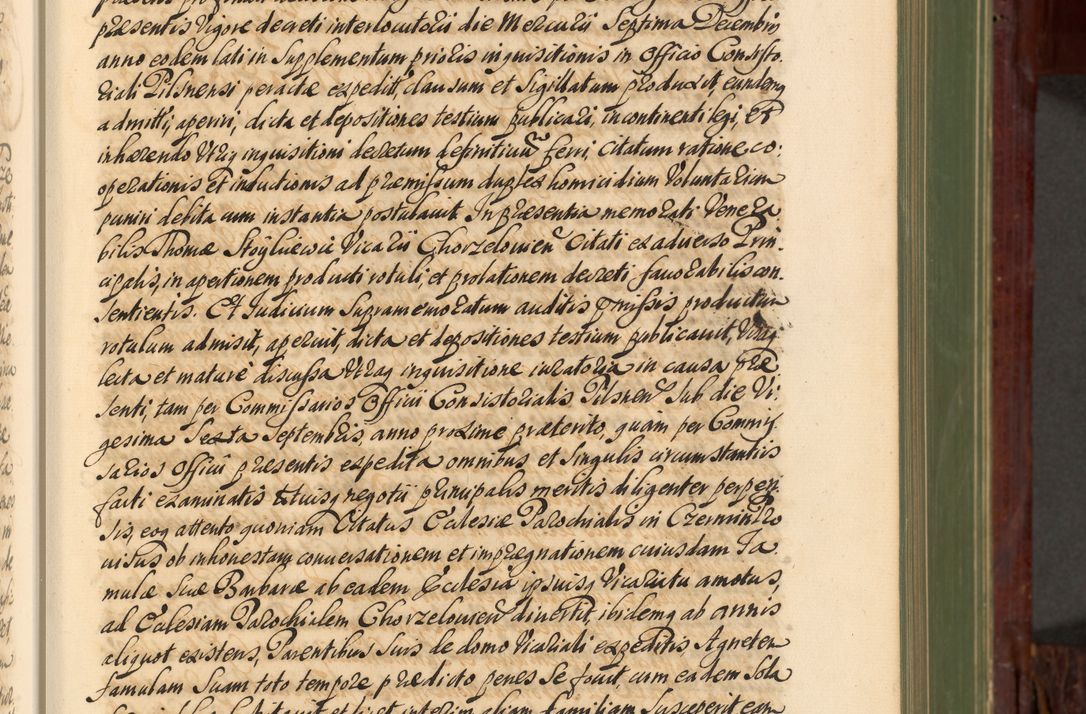 præsentis vigore decreti interlocutorii die Mercurii Septima Decembris
anno eodem lati in Supplementum prioris inquisitionis in Officio Consisto-
riali Pilsnensi peractæ expedit, clausum et Sigillatum produxit, eundemq
admitti, aperiri, dicta et depositiones testium publicari, in continenti legi, Et
inhærendo Utrig inquisitioni decretum definitiuũ ferri, Citatum ratione co-
operationis Et inductionis ad præmissum duplex homicidium Voluntarium
puniri debita cum instantia postulauit. In præsentia memorati Venera
bilis Thomæ Stoyluewic Vicarii Chorzelouien Citati ex aduerso Prin-
cipalis, in apertionem producti rotuli, et prolationem decreti fauorabilis con-
sentientis. Et Judicium Supramemoratum auditis pmissis productum
rotulum admisit, aperuit, dicta et depositiones testium publicauit, Utrag
lecta et mature discussa Utrag inquisitione iuratoria in causa præ
senti, tam per Commissarios Officii Consistorialis Pilsnen Sub die Vi-
gesima Sexta Septembris, anno proxime præterito, quam per Commis-
sarios Officii præsentis expedita omnibus et Singulis circumstantiis
facti examinatis totiusq negotii principalis meritis diligenter perpen-
sis, eoq attento quoniam Citatus Ecclesiæ Parochialis in Czermin Pro
uisus ob inhonestam conuersationem et imprægnationem cuiusdam Fa
mulæ Suæ Barbaræ ab eadem Ecclesia ipsiusq Vicariatu amotus,
ad Ecclesiam Parochialem Chorzelouien diuertit, ibidemq ab annis
aliquot existens, Parentibus Suis de domo Vicariali expeditis Agneten
famulam Suam toto tempore prædicto penes Se fouit, cum eadem Sola